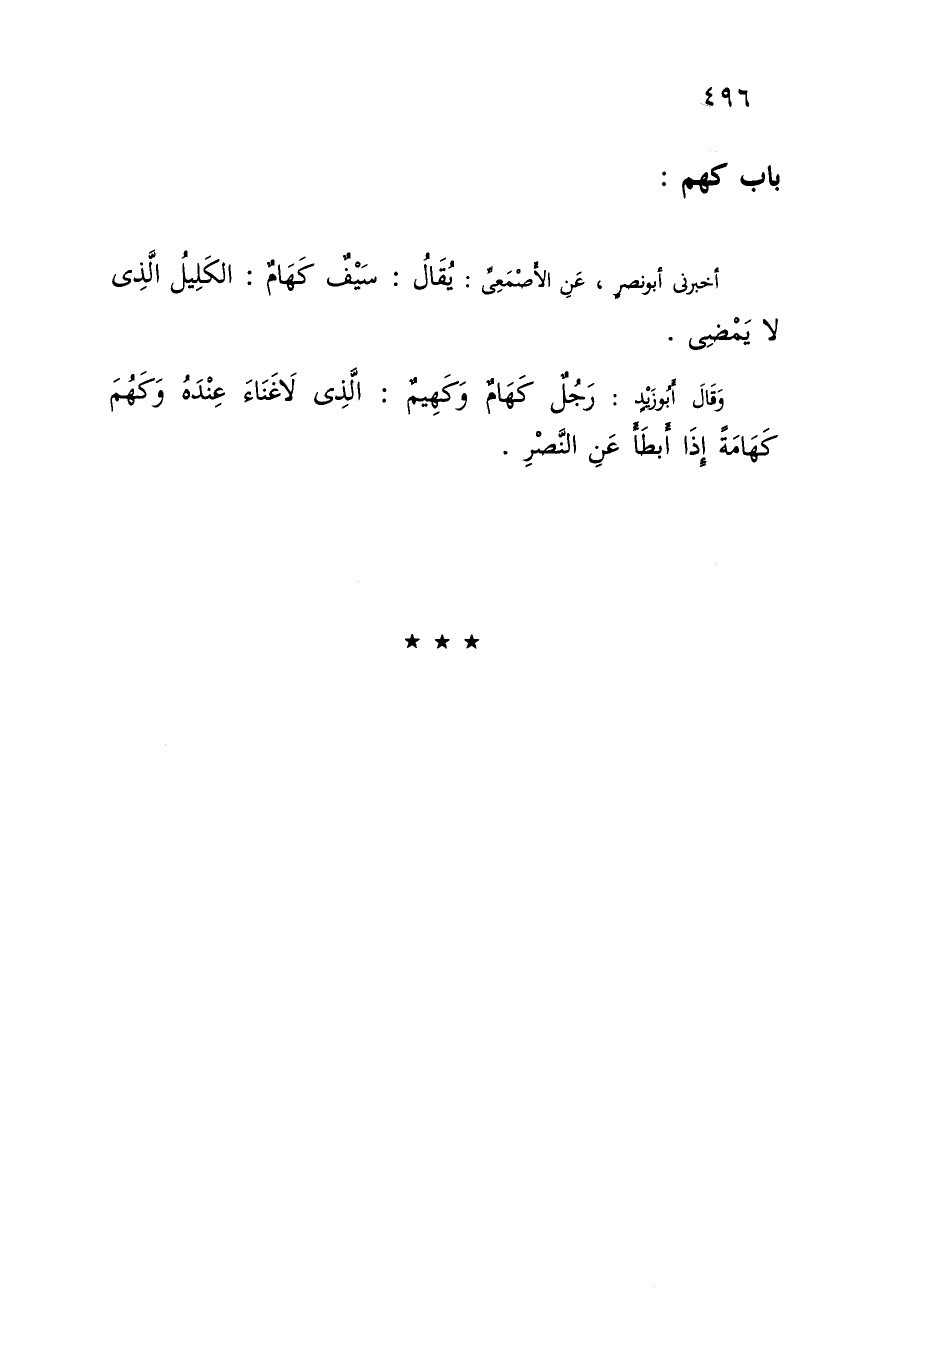 ٤٩٦
باب كهم :
أخبرنى أبونصرٍ ، عَنِ الأَصْمَعِىِّ : يُقَالُ : سَيْفٌ كَهَامٌ : الكَلِيلُ الَّذِى
لا يَمْضِى .
وَقَالَ أَبُوزَيْدٍ : رَجُلٌ كَهَامٌ وَكَهِيمٌ : الَّذِى لَاغَنَاءَ عِنْدَهُ وَكَهُمَ
كَهَامَةً إِذَا أَبطَأَ عَنِ النَّصْرِ .
★ ★ ★